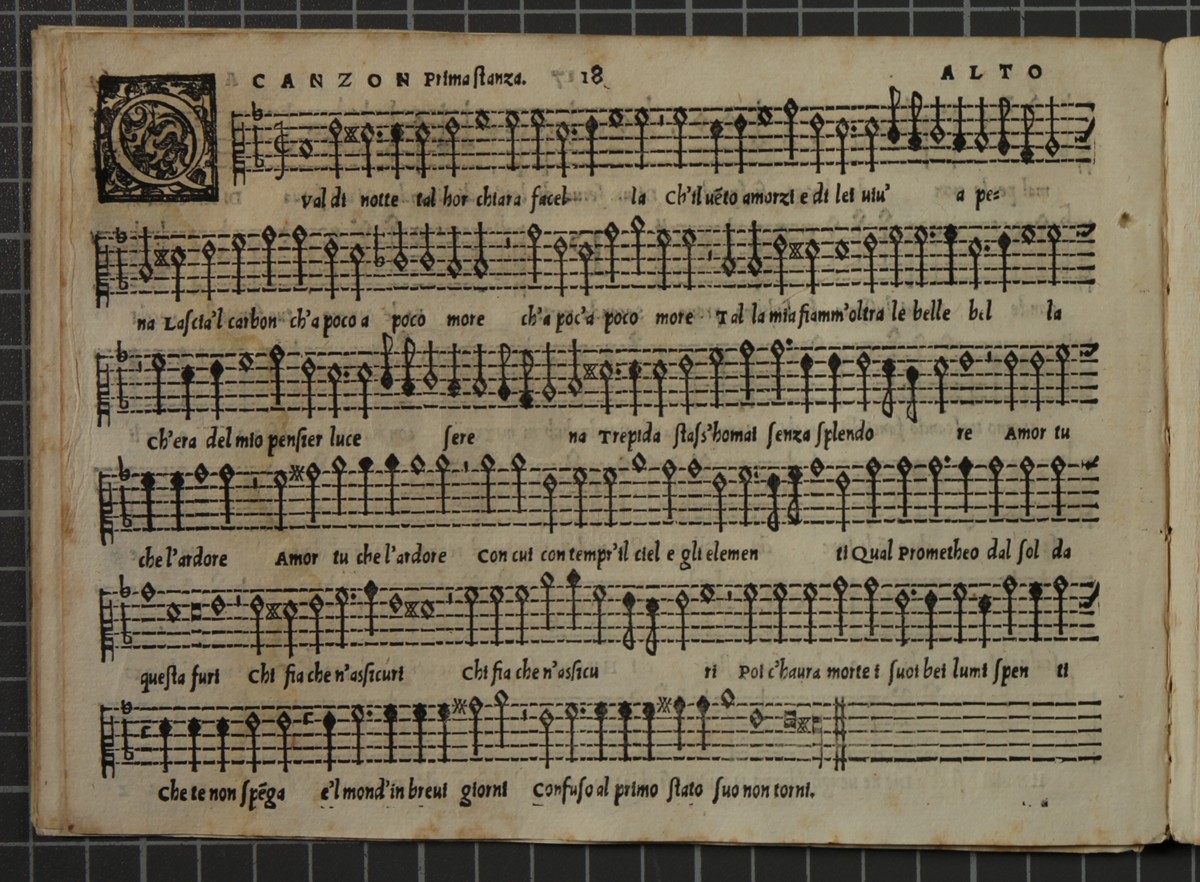 CANZON Prima ſtanza. 18 ALTO
Q Val di notte tal hor chiara facel la Ch'il uẽto amorzi e di lei uiu' a pe=
na Laſcia'l carbon ch'a poco a poco more ch'a poc'a poco more Tal la mia fiamm'oltra le belle bel la
Ch'era del mio penſier luce ſere na Trepida ſtaſs'homai ſenza ſplendo re Amor tu
che l'ardore Amor tu che l'ardore Con cui con tempr'il ciel e gli elemen ti Qual Prometheo dal ſol da
queſta furi Chi fia che n'aſsicuri Chi fia che n'aſsicu ri Poi c'haura morte i ſuoi bei lumi ſpen ti
Che te non ſpẽga e'l mond'in breui giorni Confuſo al primo ſtato ſuo non torni.